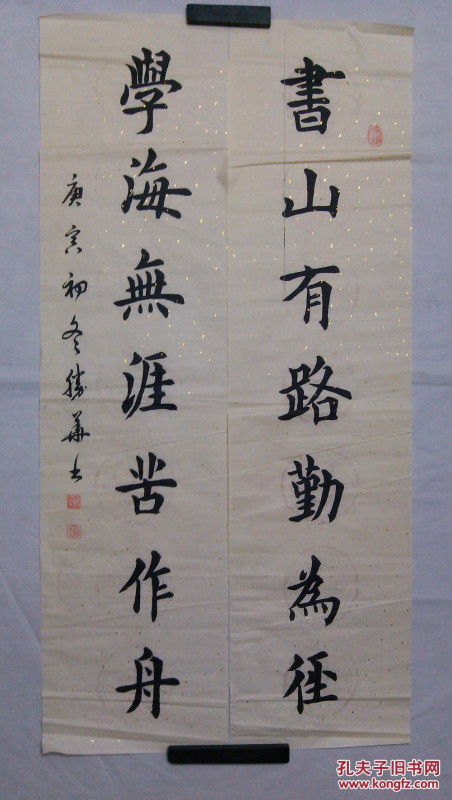 書山有路勤為徑
學海無涯苦作舟
庚寅初冬勝華书
孔夫子旧书网
KONGFZ.COM